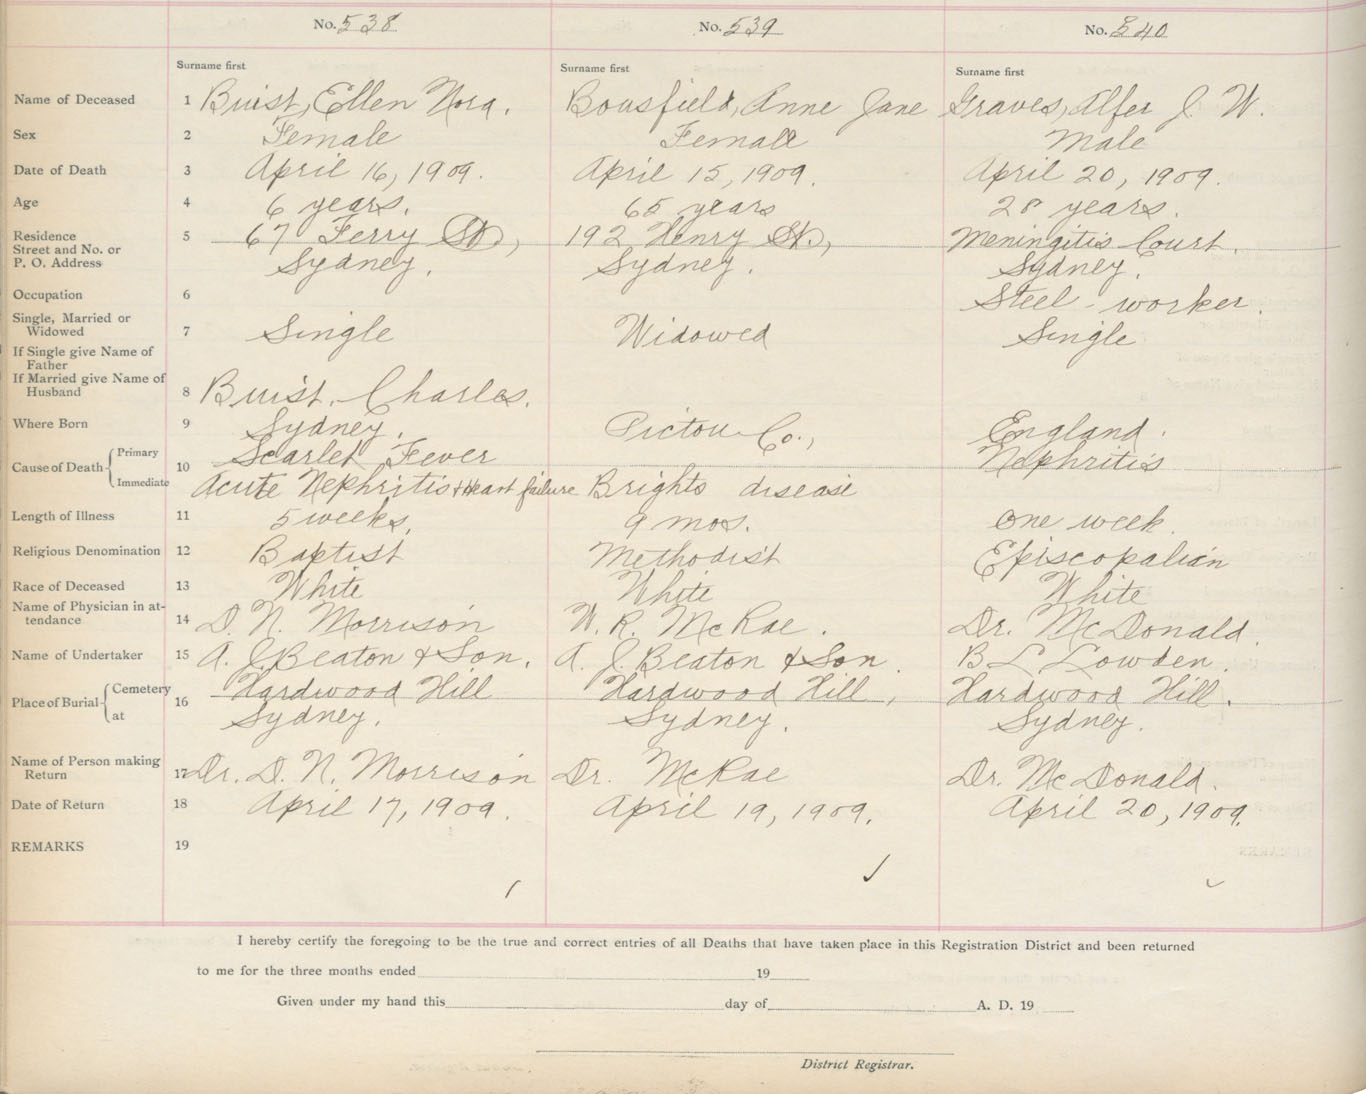 No. 538 No. 539 No. 540
Surname first Surname first Surname first
Name of Deceased 1 Buist, Ellen Nora. Bousfield, Anne Jane Graves, Alfer J. W.
Sex 2 Female Female Male
Date of Death 3 April 16, 1909. April 15, 1909. April 20, 1909.
Age 4 6 years. 65 years 28 years.
Residence 5 67 Ferry St., 192 Henry St., Meningitis Court.
Street and No. or
P. O. Address Sydney. Sydney. Sydney.
Occupation 6 Steel-worker.
Single, Married or
Widowed 7 Single Widowed Single
If Single give Name of
Father
If Married give Name of
Husband 8 Buist, Charles.
Where Born 9 Sydney. Pictou Co., England.
Cause of Death 10 Primary Scarlet Fever Nephritis
Immediate Acute Nephritis & Heart failure Brights disease
Length of Illness 11 5 weeks. 9 mos. One week.
Religious Denomination 12 Baptist Methodist Episcopalian
Race of Deceased 13 White White White
Name of Physician in at-
tendance 14 D. N. Morrison W. R. McRae. Dr. McDonald.
Name of Undertaker 15 A. J. Beaton & Son. A. J. Beaton & Son. B L Lowden.
Place of Burial 16 Cemetery Hardwood Hill Hardwood Hill, Hardwood Hill.
at Sydney. Sydney. Sydney.
Name of Person making
Return 17 Dr. D. N. Morrison Dr. McRae Dr. McDonald.
Date of Return 18 April 17, 1909. April 19, 1909. April 20, 1909.
REMARKS 19
I hereby certify the foregoing to be the true and correct entries of all Deaths that have taken place in this Registration District and been returned
to me for the three months ended 19
Given under my hand this day of A. D. 19
District Registrar.